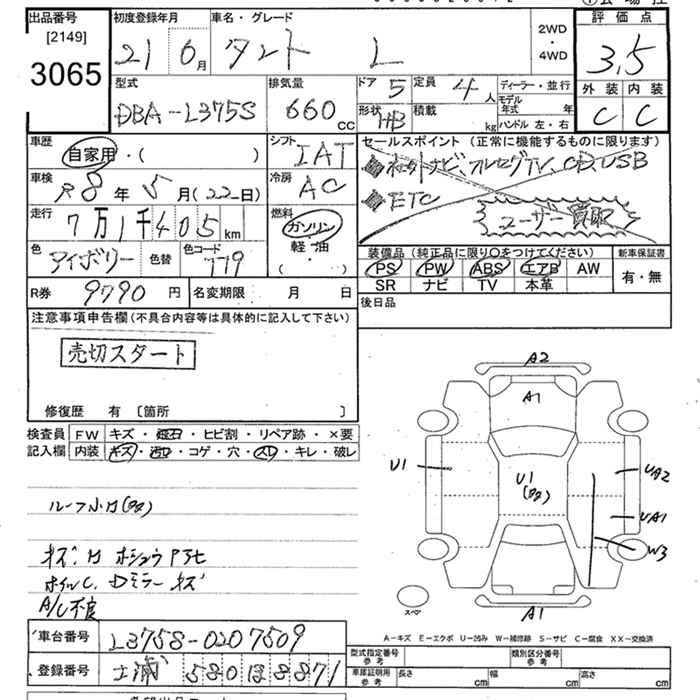 出品番号
[2149]
3065
初度登録年月
21 6月
車名・グレード
タント L
2WD
・
4WD
評価点
3.5
外装 内装
C C
型式
DBA-L375S
排気量
660 CC
ドア 5
定員 4人
形状 HB
積載 kg
ディーラー・並行
モデル年式 年
ハンドル 左・右
車歴
自家用・( )
シフト
IAT
セールスポイント(正常に機能するものに限ります)
ナビ、フルセグTV、CD、USB
ETC
ユーザー買取
車検
R8年5月(22日)
冷房
AC
走行
7万1千405km
燃料
ガソリン
軽・油
・( )
色
アイボリー
色替
色コード
T19
装備品(純正品に限り〇をつけてください)
PS PW ABS エアB AW
SR ナビ TV 本革
新車保証書
有・無
R券 9790円
名変期限 月 日
後日品
注意事項申告欄(不具合内容等は具体的に記入して下さい)
売切スタート
修復歴 有 〔箇所 〕
検査員
記入欄
FW キズ・飛石・ヒビ割・リペア跡・×要
内装 キズ・汚れ・コゲ・穴・スレ・キレ・破レ
A2
A1
U1
U1
UA2
UA1
W3
A1
スペア
ホイルC、Dミラーキズ
A/C不良
A-キズ E-エクボ U-凹み W-補修跡 S-サビ C-腐食 XX-交換済
車台番号 L375S-0207509
登録番号 土浦 580 ほ 8871
型式指定番号
参考
類別区分番号
参考
車庫証明用
参考
長さ cm
幅 cm
高さ cm